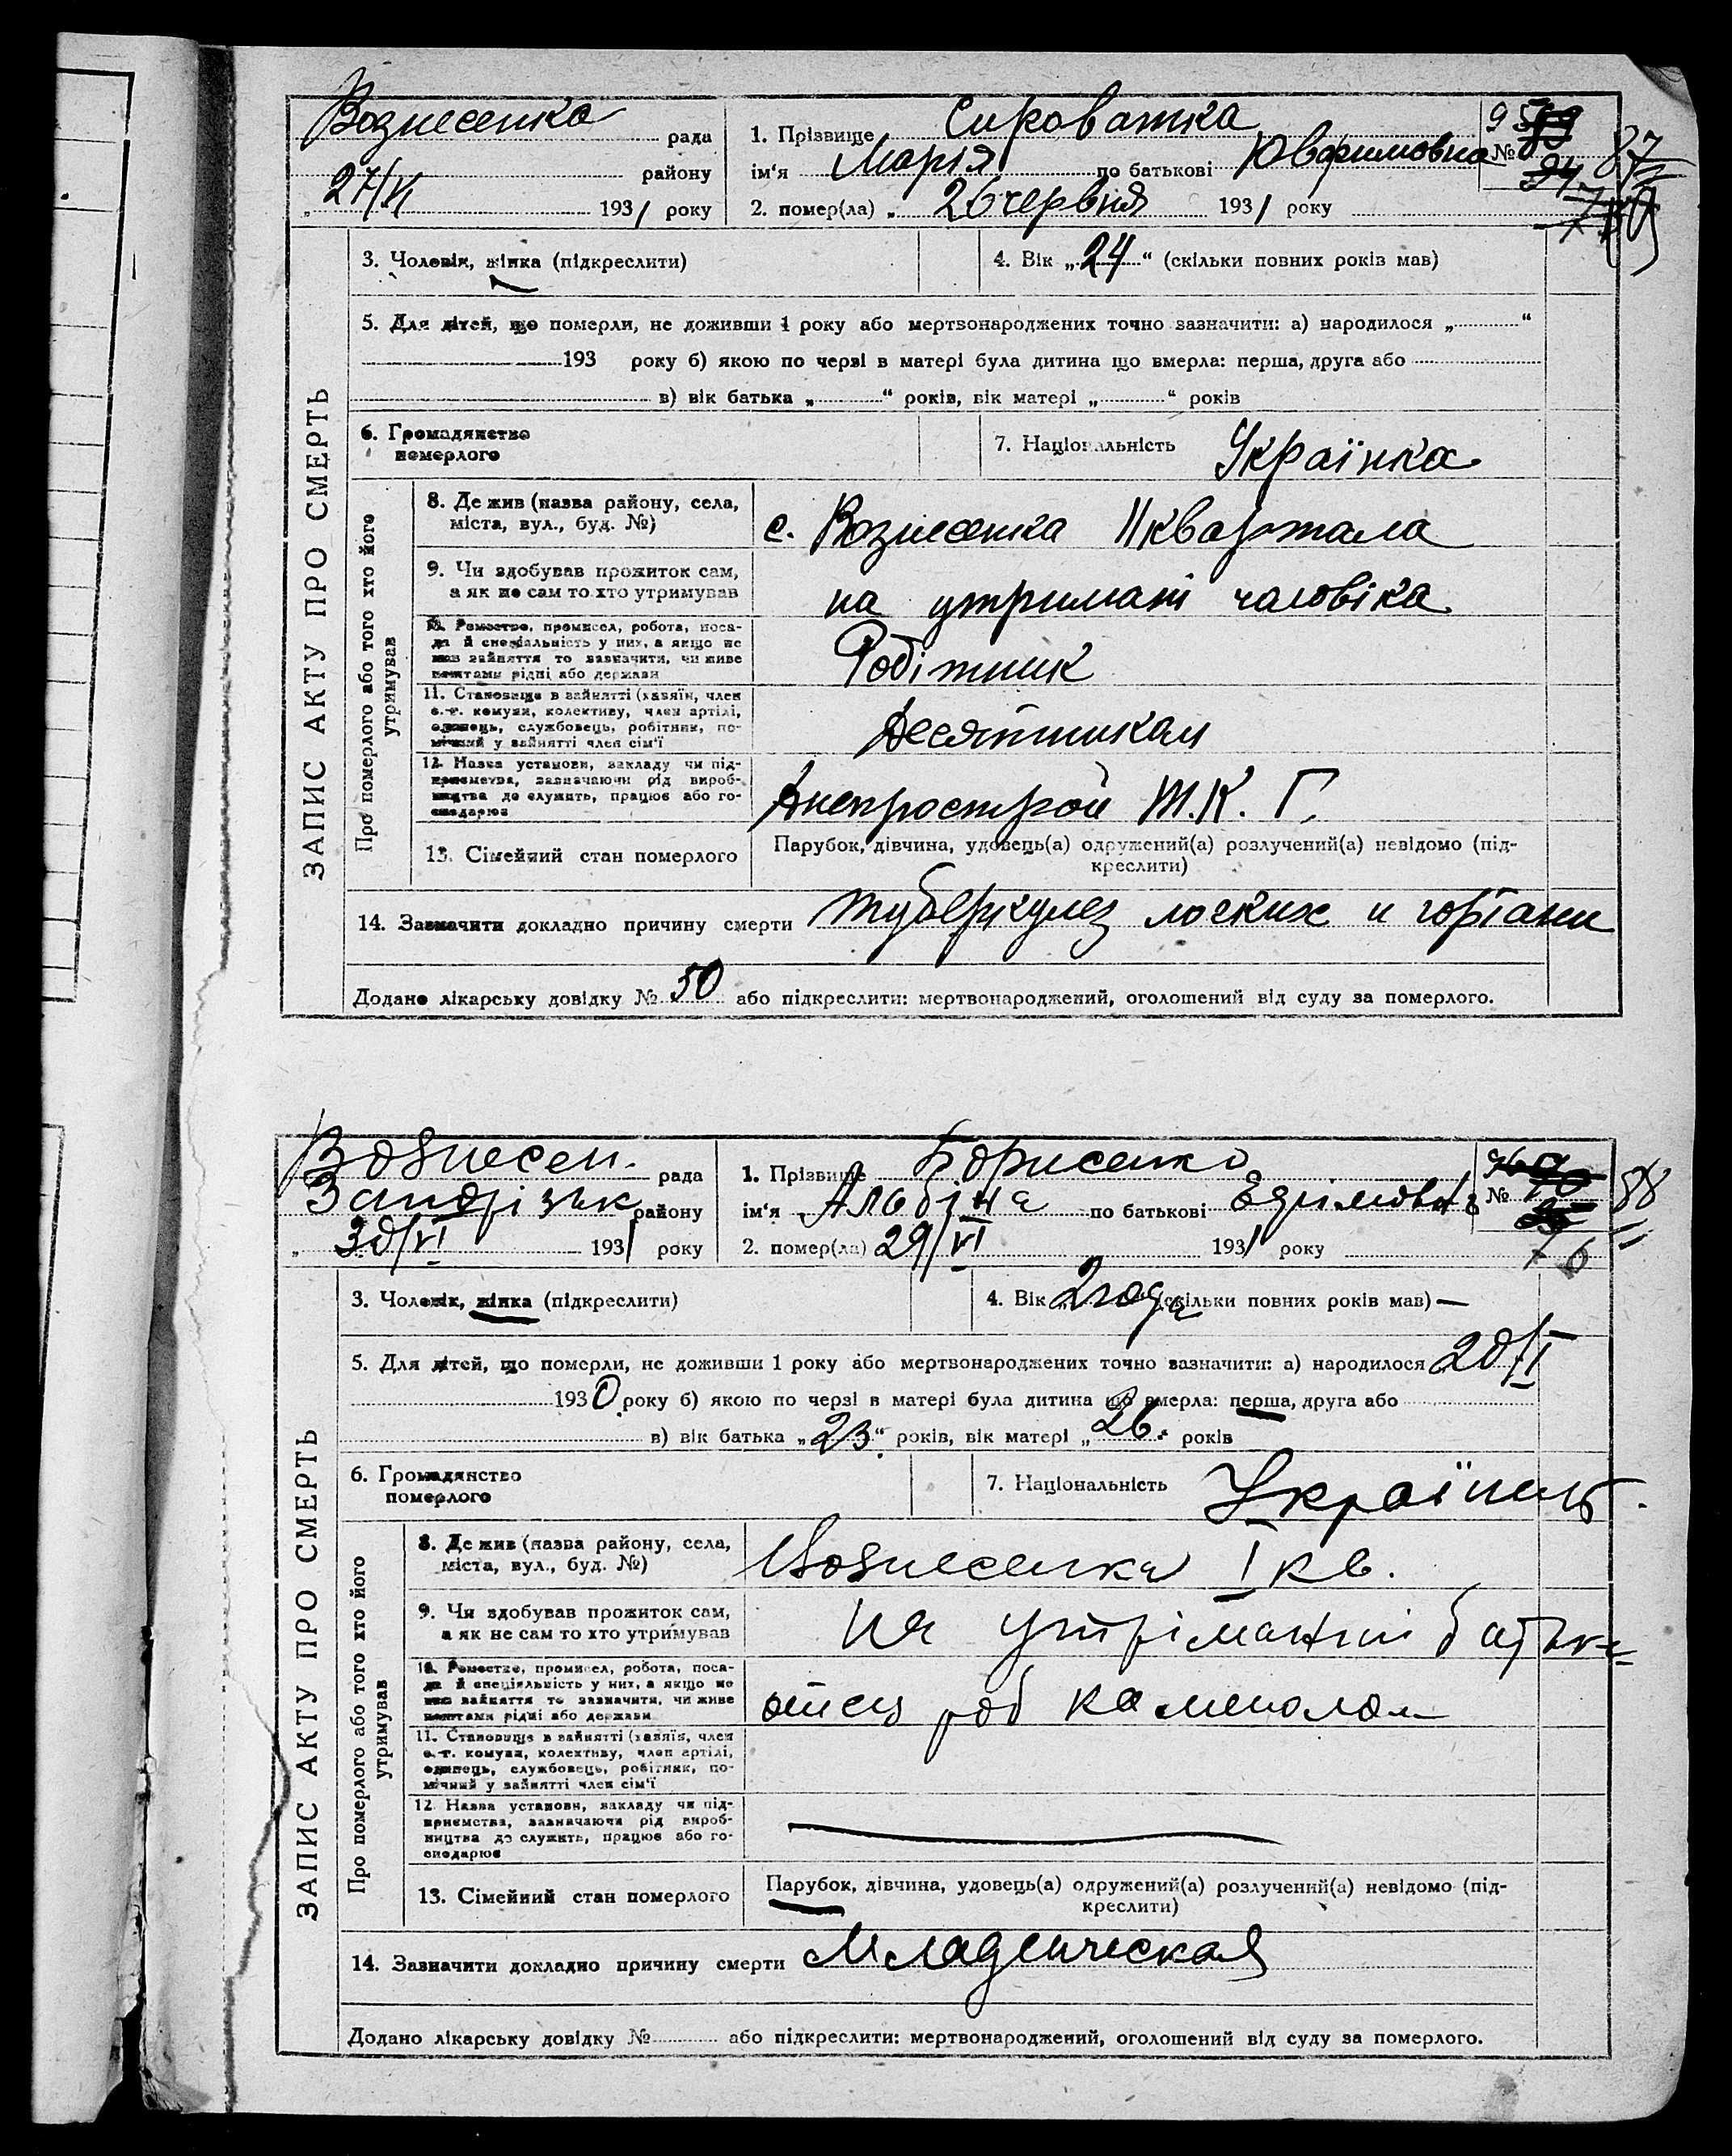 Вознесенка рада
1. Прізвище Сироватка
району
ім'я Марія по батькові Ювфимовна №
87
27/VI 1931 року
2. помер(ла) „ 26 червня 1931 року
3. Чоловік, жінка (підкреслити)
4. Вік „24“ (скільки повних років мав)
5. Для дітей, що померли, не доживши 1 року або мертвонароджених точно зазначити: а) народилося „ “
193 року б) якою по черзі в матері була дитина що вмерла: перша, друга або
в) вік батька „ “ років, вік матері „ “ років
6. Громадянство
померлого
7. Національність Українка
ЗАПИС АКТУ ПРО СМЕРТЬ
Про померлого або того хто його
утримував
8. Де жив (назва району, села,
міста, вул., буд. №)
с. Вознесенка II квартала
9. Чи здобував прожиток сам,
а як не сам то хто утримував
на утримані чаловіка
10. Ремество, промисел, робота, поса-
да й спеціальність у них, а якщо не
мав зайняття то зазначити, чи живе
коштами рідні або держави
Робітник
11. Становище в зайнятті (хазяїн, член
с.-г. комуни, колективу, член артілі,
одинець, службовець, робітник, по-
мічний у зайнятті член сім'ї
Десятником
12. Назва установи, закладу чи під-
приємства, зазначаючи рід вироб-
ництва де служить, працює або го-
сподарює
Днепрострой Т.К.Г.
13. Сімейний стан померлого
Парубок, дівчина, удовець(а) одружений(а) розлучений(а) невідомо (під-
креслити)
14. Зазначити докладно причину смерти туберкулез логких и гортани
Додано лікарську довідку № 50 або підкреслити: мертвонароджений, оголошений від суду за померлого.
Вознесен. рада
1. Прізвище Борисенко
Запорізьк району
ім'я Альбіна по батькові №
88
30/VI 1931 року
2. помер(ла) 29/VI 1931 року
76
3. Чоловік, жінка (підкреслити)
4. Вік „ 2 года (скільки повних років мав) —
5. Для дітей, що померли, не доживши 1 року або мертвонароджених точно зазначити: а) народилося 20/I
1930 року б) якою по черзі в матері була дитина що вмерла: перша, друга або
в) вік батька „23“ років, вік матері „26“ років
6. Громадянство
померлого
7. Національність
ЗАПИС АКТУ ПРО СМЕРТЬ
Про померлого або того хто його
утримував
8. Де жив (назва району, села,
міста, вул., буд. №)
Вознесенка I кв.
9. Чи здобував прожиток сам,
а як не сам то хто утримував
на утріманні батька
10. Ремество, промисел, робота, поса-
да й спеціальність у них, а якщо не
мав зайняття то зазначити, чи живе
коштами рідні або держави
отец роб каменолом
11. Становище в зайнятті (хазяїн, член
с.-г. комуни, колективу, член артілі,
одинець, службовець, робітник, по-
мічний у зайнятті член сім'ї
12. Назва установи, закладу чи під-
приємства, зазначаючи рід вироб-
ництва де служить, працює або го-
сподарює
13. Сімейний стан померлого
Парубок, дівчина, удовець(а) одружений(а) розлучений(а) невідомо (під-
креслити)
14. Зазначити докладно причину смерти Младенческая
Додано лікарську довідку № або підкреслити: мертвонароджений, оголошений від суду за померлого.